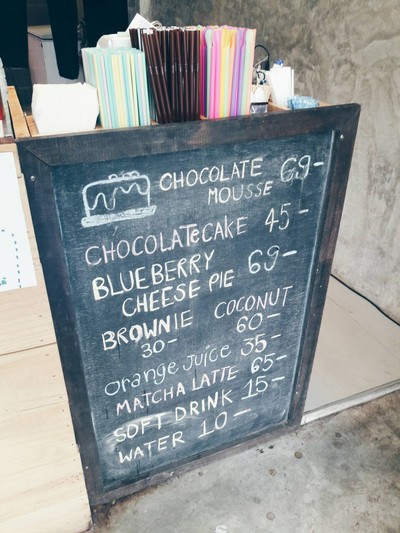 CHOCOLATE 69-
MOUSSE
CHOCOLATECAKE 45-
BLUEBERRY
CHEESE PIE 69-
BROWNIE COCONUT
30- 60-
orange Juice 35-
MATCHA LATTE 65-
SOFT DRINK 15-
WATER 10-